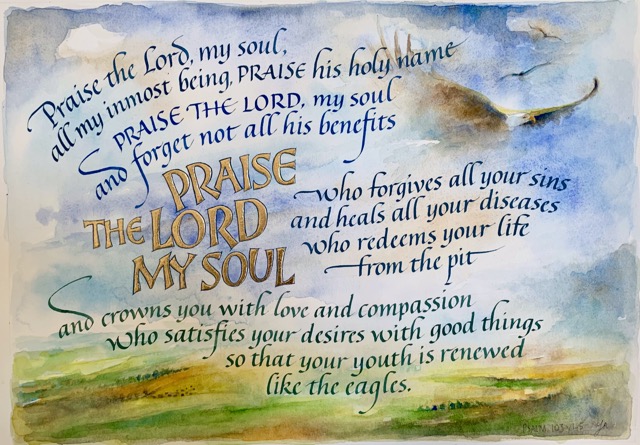 Praise the Lord, my soul,
all my inmost being, PRAISE his holy name
PRAISE THE LORD, my soul
and forget not all his benefits
PRAISE
THE LORD
MY SOUL
who forgives all your sins
and heals all your diseases
who redeems your life
from the pit
and crowns you with love and compassion
who satisfies your desires with good things
so that your youth is renewed
like the eagles.
PSALM 103 v1-5